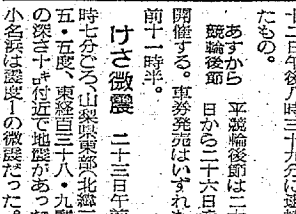 十二日午後八時三十九分に逮
たもの。
あすから 平競輪後節は二十
競輪後節 日から二十六日ま
開催する。車券発売はいずれも
前十一時半。
けさ微震 二十三日午前
時七分ごろ、山梨県東部(北緯三
五・五度、東経百三十八・九度
の深さ十㌔付近で地震があった
小名浜は震度1の微震だった。